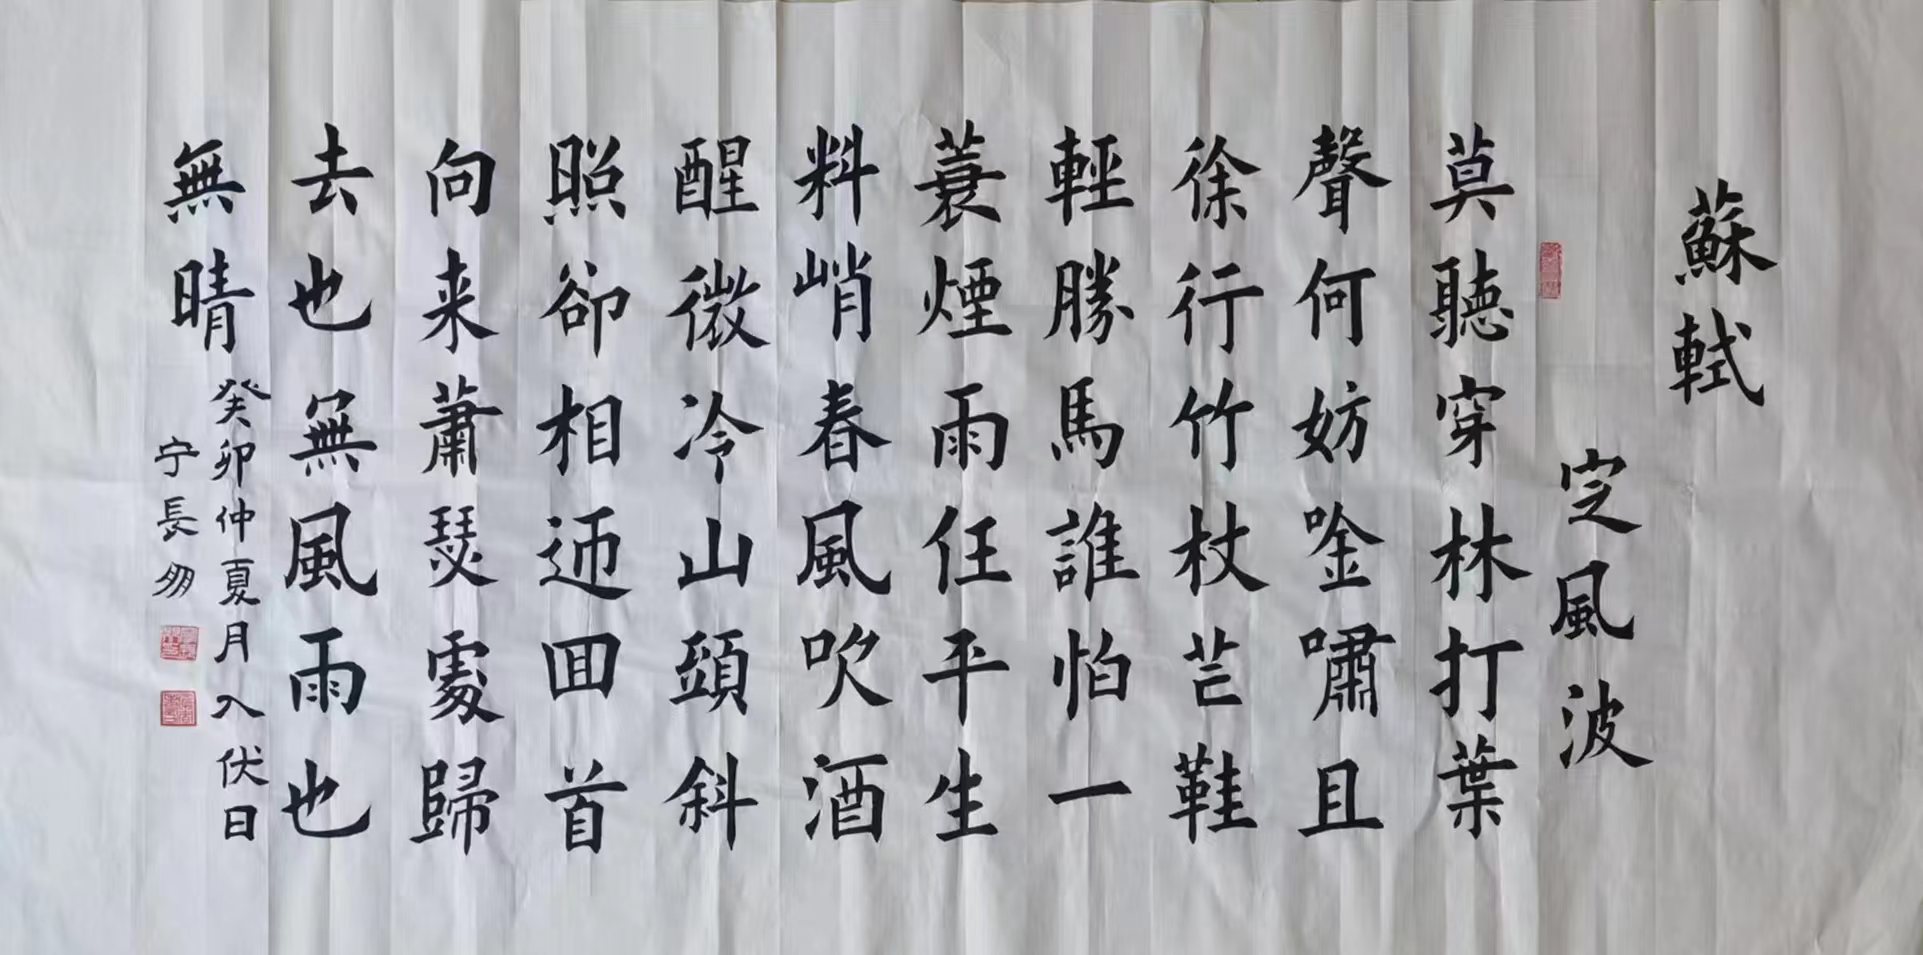 蘇軾
定風波
莫聽穿林打葉
聲何妨唫嘯且
徐行竹杖芒鞋
輕勝馬誰怕一
蓑煙雨任平生
料峭春風吹酒
醒微冷山頭斜
照卻相迎囬首
向来蕭瑟處歸
去也無風雨也
無晴
癸卯仲夏月入伏日
宁長